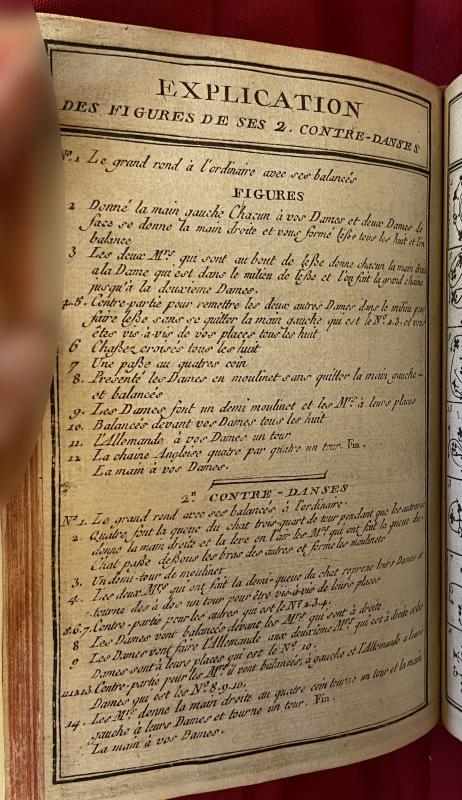 EXPLICATION
DES FIGURES DE SES 2. CONTRE-DANSES
Nº. 1. Le grand rond à l'ordinaire avec ses balancés
FIGURES
2 Donné la main gauche Chacun à vos Dames et deux Dames de
face se donne la main droite et vous formé lesse tous les huit et l'on
balance
3 Les deux Mrs. qui sont au bout de lesse donne chacun la main droite
a la Dame qui est dans le milieu de lesse et l'on fait la grand chaine
jusqu'à la deuxieme Dames.
4.5. Contre-partie pour remettre les deux autres Dames dans le milieu pour
faire lesse sans se quitter la main gauche qui est le Nº. 2.3. et vous
êtes vis-à-vis de vos places tous les huit
6 Chassez croisés tous les huit
7 Une passe au quatres coin
8. Presenté les Dames en moulinet sans quitter la main gauche
et balancés
9. Les Dames font un demi moulinet et les Mrs. à leurs places
10. Balancés devant vos Dames tous les huit
11 L'Allemande à vos Dames un tour
12 La chaine Angloise quatre par quatre un tour. Fin.
La main à vos Dames.
2e. CONTRE-DANSES
Nº. 1. Le grand rond avec ses balancés à l'ordinaire.
2. Quatre font la queue du chat trois-quart de tour pendant que les autres se
donne la main droite et la leve en l'air les Mrs. qui ont fait la queue du
Chat passe dessous les bras des autres et forme les moulinets
3. Un demi-tour de moulinet
4. Les deux Mrs. qui ont fait la demi-queue du chat reprene leurs Dames et
tourne dos à dos un tour pour être vis-à-vis de leurs places
5.6.7. Contre-partie pour les autres qui est le Nº. 2.3.4.
8 Les Dames vont balancés devant les Mrs. qui sont à droite
9 Les Dames vont faire l'Allemande aux deuxième Mrs. qui est à droite et les
Dames sont à leurs places qui est le Nº. 10.
11.12.13. Contre-partie pour les Mrs. il vont balancés, à gauche et l'Allemande à leurs
Dames qui est les Nº. 8.9.10.
14. Les Mrs. donne la main droite au quatre coin tourne un tour et la main
gauche à leurs Dames et tourne un tour. Fin
La main à vos Dames.